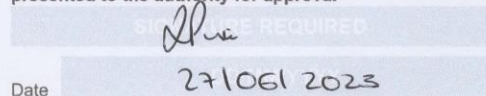 presented to the authority for approval.
SIGNATURE REQUIRED
Date 27/06/2023